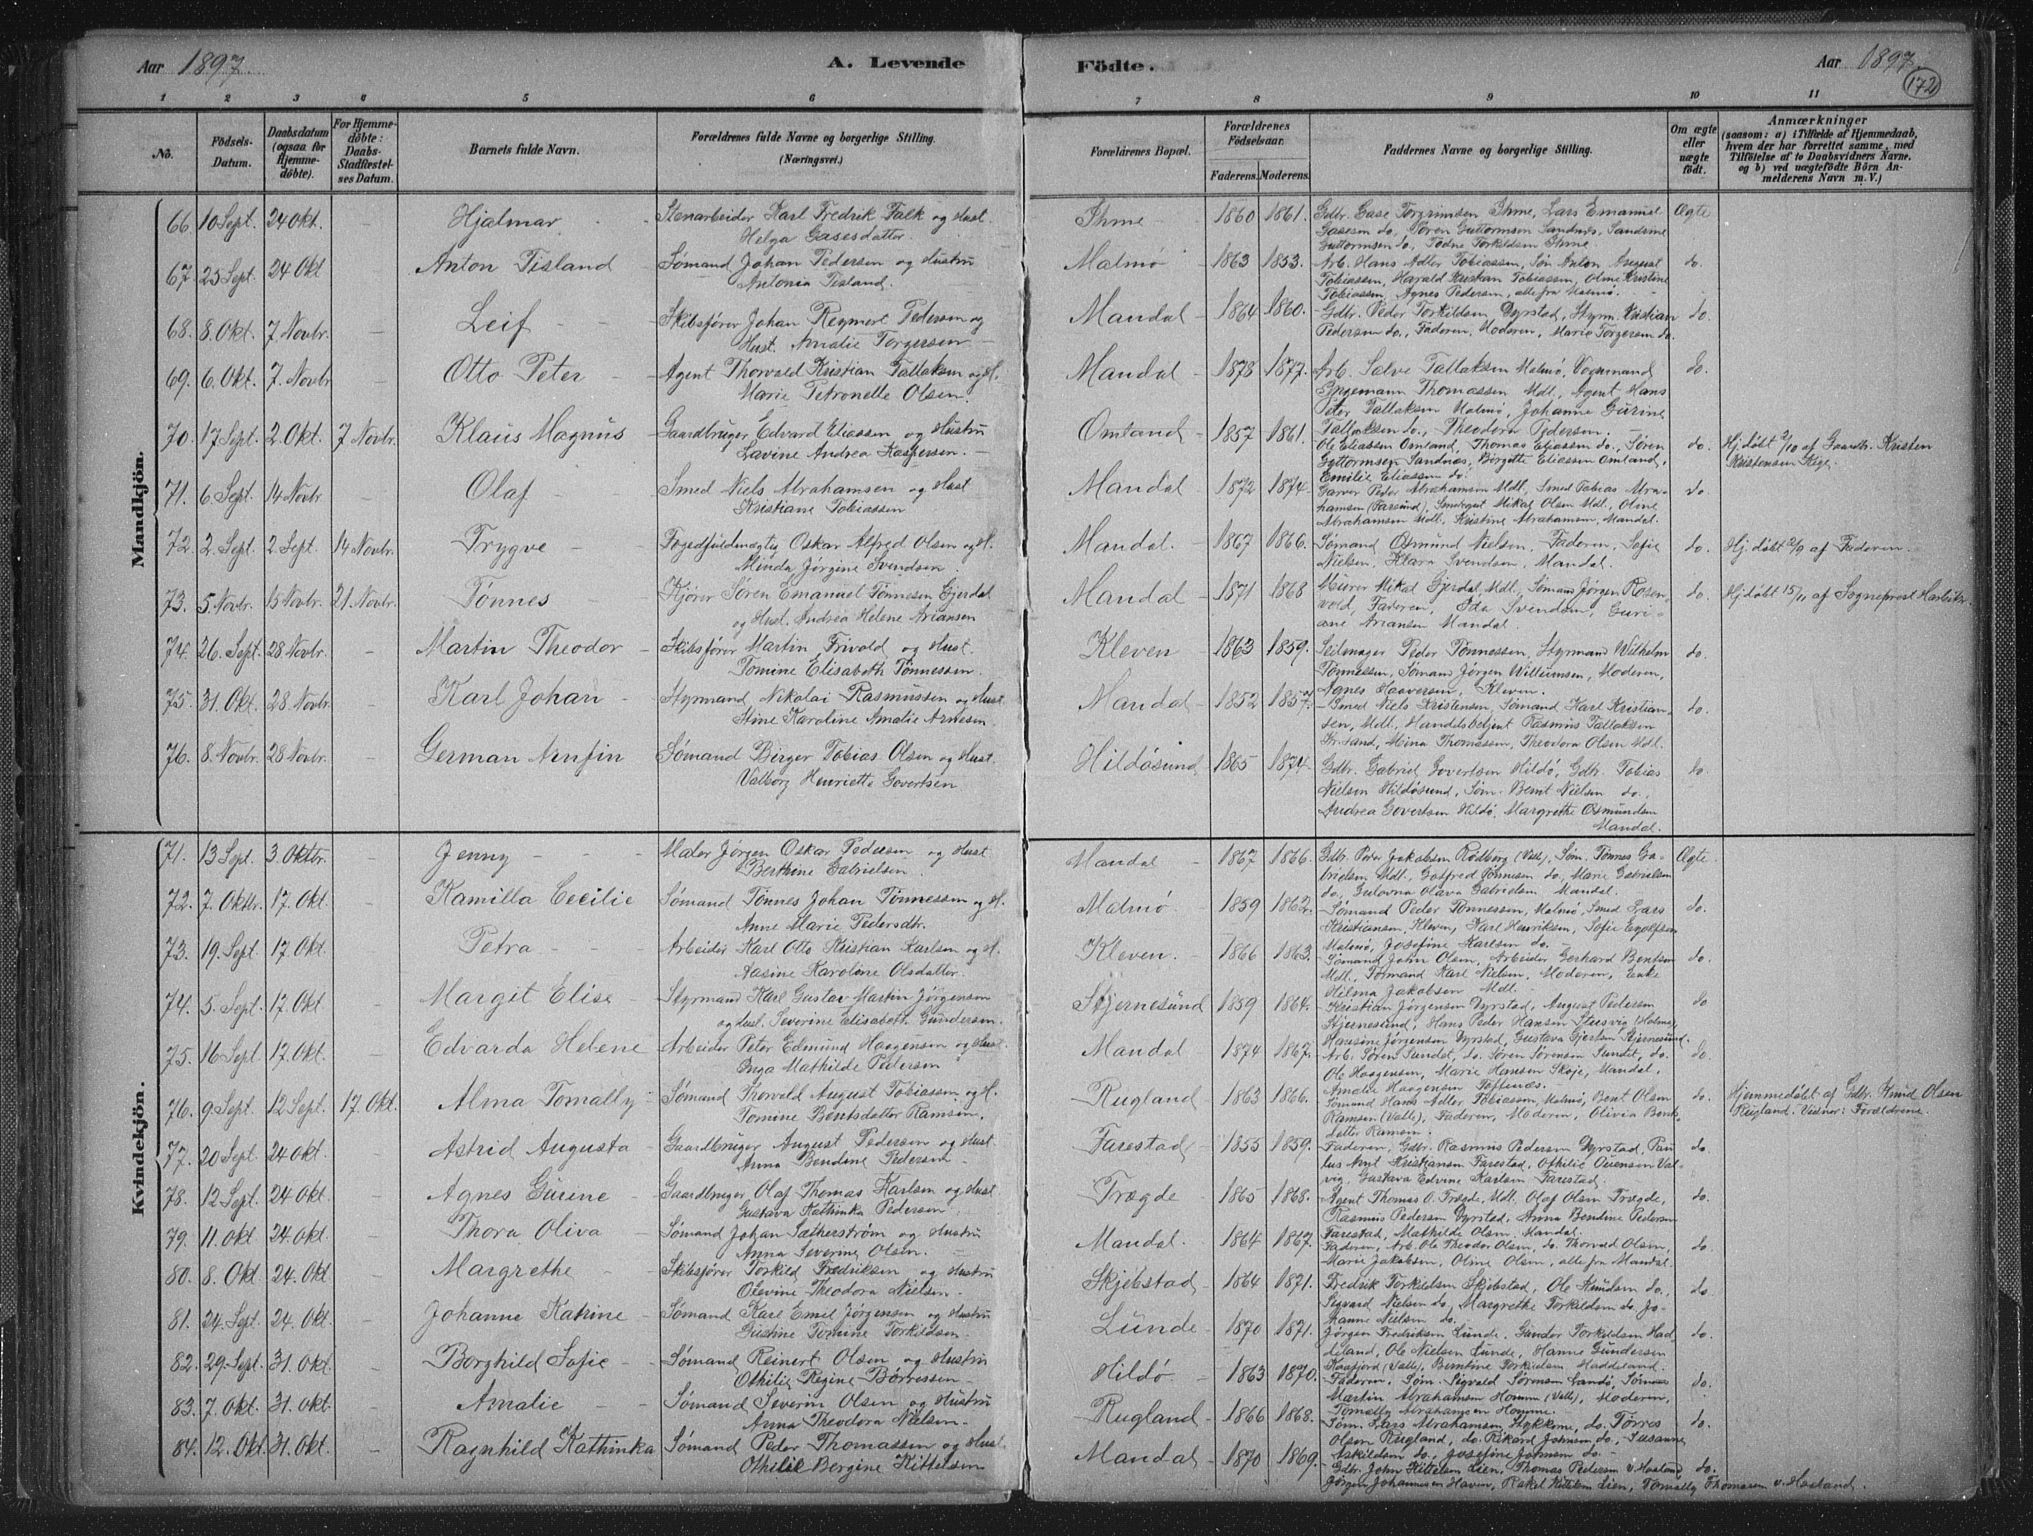 Aar 1897.
A. Levende
Födte.
Aar 1897.
172
1 2 3 4 5 6 7 8 9 10 11
No.
Födsels-Datum.
Daabsdatum (ogsaa for Hjemmedöbte).
For Hjemmedöbte: Daabs-Stadfæstelses Datum.
Barnets fulde Navn.
Forældrenes fulde Navne og borgerlige Stilling.
(Næringsvei.)
Forældrenes Bopæl.
Forældrenes Födselsaar.
Faderens. Moderens.
Faddernes Navne og borgerlige Stilling.
Om ægte eller uægte födt.
Anmærkninger
(saasom: a) i Tilfælde af Hjemmedaab, hvem der har forrettet samme, med Tilföielse af to Daabsvidners Navne, og b) ved uægtefödte Börn Anmelderens Navn m. V.)
Mandkjön.
66. 10 Sept. 24 Okt. Hjalmar Stenarbeider Karl Fredrik Falk og Hust. Ihme 1860 1861. Gdbr. Gase Torgrimsen Ihme, Lars Emanuel Ægte
Helga Gasesdatter. Gasesen do, Søren Guttormsen Sandnes, Sandrine
Guttormsen do, Todne Torkildsen Ihme.
67. 25 Sept. 24 Okt. Anton Tisland Sømand Johan Pedersen og Hustru Malmø 1863 1853. Arb. Hans Adler Tobiassen, Søn Anton August do.
Antonia Tisland. Tobiassen, Harald Kristian Tobiassen, Oline Kristine
Tobiassen, Agnes Pedersen, alle fra Malmø.
68. 8. Okt. 7 Novbr. Leif Skibsfører Johan Reymert Pedersen og Mandal 1864 1860. Gdbr. Peder Torkildsen Dyrstad, Styrm. Kristian do.
Hust. Amalie Torgersen Pedersen do, Faderen, Moderen, Marie Torgersen do.
69. 6. Okt. 7. Novbr. Otto Peter Agent Thorvald Kristian Tallaksen og H. Mandal 1873 1877. Arb. Salve Tallaksen Malmø, Vognmand do.
Marie Petronelle Olsen. Engemann Thomassen Mdl., Agent Hans
Peter Tallaksen Malmø, Johanne Gurine
Tallaksen do., Theodora Pedersen.
70. 17 Sept. 2. Okt. 7 Novbr. Klaus Magnus Gaardbruger Edvard Eliassen og Hustru Omland 1857 1861. Ole Eliassen Omland, Thomas Eliassen do., Søren do. Hj.døbt 2/10 af Gaardbr. Kristen
Lavine Andrea Kaspersen. Guttormsen Sandnæs, Birgitte Eliassen Omland, Kristensen Kige.
Emilie Eliassen do.
71. 6. Sept. 14 Novbr. Olaf Smed Niels Abrahamsen og Hust. Mandal 1872 1874. Garver Peder Abrahamsen Mdl., Smed Tobias Abra- do.
Kristiane Tobiassen hamsen (Farsund), Smedegut Mikal Olsen Mdl., Oline
Abrahamsen Mdl., Kristine Abrahamsen, Mandal.
72. 2. Sept. 2 Sept. 14 Novbr. Trygve Fogedfuldmægtig Oskar Alfred Olsen og H. Mandal. 1867 1866. Sømand Osmund Nielsen, Faderen, Sofie do. Hj.døbt 2/9 af Faderen.
Minda Jørgine Svendsen. Nielsen, Klara Svendsen, Mandal.
73. 5 Novbr. 15 Novbr. 21 Novbr. Tønnes Kjører Søren Emanuel Tønnesen Gjerdal Mandal 1871 1868 Murer Mikal Gjerdal Mdl., Sømand Jørgen Rosen- do. Hj.døbt 15/11 af Sogneprest
og Hust. Andrea Helene Ariansen vold, Faderen, Ida Svendsen, Guri-
ane Ariansen Mandal.
74. 26. Sept. 28 Novbr. Martin Theodor Skibsfører Martin Frivold og Hust. Kleven 1863 1859. Seilmager Peder Tønnessen, Styrmand Wilhelm do.
Tomine Elisabeth Tønnessen. Tønnessen, Sømand Jørgen Willumsen, Moderen,
Agnes Haaversen, Kleven.
75. 31. Okt. 28 Novbr. Karl Johan Styrmand Nikolai Rasmussen og Hust. Mandal 1852 1857. Smed Niels Kristensen, Sømand Karl Kristian- do.
Stine Karoline Amalie Arnesen. sen, Mdl. Handelsbetjent Rasmus Tallaksen
Kr.sand, Mina Thomassen, Theodora Olsen Mdl.
76. 8. Novbr. 28 Novbr. German Arnfin Sømand Birger Tobias Olsen og Hust. Hildøsund 1865 1874. Gdbr. Gabriel Govertsen Hildø, Gdbr. Tobias do.
Valborg Henriette Govertsen Nielsen Hildøsund, Søm. Bernt Nielsen do.
Andrea Govertsen Hildø, Margrethe Osmundsen
Mandal.
Kvindekjön.
71. 13 Sept. 3. Oktbr. Jenny Maler Jørgen Oskar Pedersen og Hust. Mandal 1867 1866. Gdbr. Peder Jakobsen Rødberg (Valle), Søm. Tønnes Ga- Ægte.
Berthine Gabrielsen. brielsen Mdl., Gotfred Tønnesen do, Marie Gabrielsen
do, Gulovna Olava Gabrielsen Mandal.
72. 7. Oktbr. 17. Okt. Kamilla Cecilie Sømand Tønnes Johan Tønnessen og H. Malmø 1859 1862. Sømand Peder Tønnessen, Malmø, Smed Lars do.
Anne Marie Pedersdtr. Kristiansen, Kleven, Karl Henriksen, Sofie Egolfsen
Malmø, Josefine Karlsen do.
73. 19. Sept. 17. Okt. Petra Arbeider Karl Otto Kristian Karlsen og H. Kleven. 1866 1863. Sømand John Olsen, Arbeider Gerhard Bentsen do.
Aasine Karoline Olsdatter. Mdl., Formand Karl Nielsen, Moderen, Enke
Hilma Jakobsen Mdl.
74. 5. Sept. 17. Okt. Margit Elise Styrmand Karl Gustav Martin Jørgensen Skjernesund 1859 1864. Kristian Jørgensen Dyrstad, August Pedersen do
og Hust. Severine Elisabeth Gundersen. Skjernesund, Hans Peder Hansen Stusvig (Holme),
Haresine Jørgensen Dyrstad, Gustava Gjertsen Skjernesund.
75. 16 Sept. 17. Okt. Edvarda Helene Arbeider Peter Edmund Haagensen og Hust. Mandal 1874 1867. Arb. Søren Sundet, do. Søren Sørensen Sundet, do. do.
Inga Mathilde Pedersen Ole Haagensen, Marie Hansen Skoje, Mandal.
Amalie Haagensen Toftenæs.
76. 9 Sept. 12 Sept. 17 Okt. Alma Tomally Sømand Thorvald August Tobiassen og H. Rugland 1863 1866. Sømand Hans Adler Tobiassen, Malmø, Bent Olsen do. Hjemmedøbt af Gdbr. Knud Olsen
Tomine Bentsdatter Ramsen. Ramsen (Valle), Faderen, Moderen, Olivia Bents- Rugland. Vidner: Forældrene.
datter Ramsen.
77. 20 Sept. 24 Okt. Astrid Augusta Gaardbruger August Pedersen og Hust. Farestad 1855 1859. Faderen, Gdbr. Rasmus Pedersen Dyrstad, Pau- do.
Anna Bendine Pedersen lus Arnt Kristiansen Farestad, Othilie Ouensen Val-
vig, Gustava Edvine Karlsen Farestad.
78. 12 Sept. 24 Okt. Agnes Gurine Gaardbruger Olaf Thomas Karlsen og Hust. Trægde 1865 1868. Agent Thomas O. Trægde, Mdl. Olaf Olsen Trægde, do.
Gustava Kathinka Pedersen. Rasmus Pedersen Dyrstad, Anna Bendine Pedersen
Farestad, Mathilde Olsen, Mandal.
79. 11. Okt. 24. Okt. Thora Oliva Sømand Johan Sætherstrøm og Hustru Mandal. 1864 1867. Faderen, Arb. Ole Theodor Olsen, do. Thorvald Olsen, do.
Anna Severine Olsen. Marie Jakobsen, Oline Olsen, alle fra Mandal.
80. 8. Okt. 24. Okt. Margrethe Skibsfører Torkild Fredriksen og Hustru Skjebstad 1864 1871. Fredrik Torkildsen Skjebstad, Ole Knudsen do., do.
Olevine Theodora Nielsen. Sigvard Nielsen do, Margrethe Torkildsen do, Jo-
hanne Nielsen do.
81. 24. Sept. 24. Okt. Johanne Katrine Sømand Karl Emil Jørgensen og Hustru Lunde 1870 1871. Jørgen Fredriksen Lunde, Gunder Torkildsen Had- do.
Gustine Tomine Torkildsen. deland, Ole Nielsen Lunde, Hanne Gundersen
Kaafjord (Valle), Berntine Torkildsen Haddeland.
82. 29. Sept. 31. Okt. Borghild Sofie Sømand Reinert Olsen og Hustru Hildø 1863 1870. Faderen, Søm. Sigvald Sørensen Sandø, Tønnes do.
Othilie Regine Børressen Martin Abrahamsen Homme (Valle), Moderen,
Tomally Abrahamsen Homme.
83. 7. Okt. 31. Okt. Amalie Sømand Severin Olsen og Hustru Rugland 1866 1868. Søm. Lars Abrahamsen Stykkene, do. Tørres do.
Anna Theodora Nielsen. Olsen Rugland, do. Rikard Johnsen do, Susanne
Askildsen do., Josefine Johnsen do.
84. 12. Okt. 31. Okt. Ragnhild Kathinka Sømand Peder Thomassen og Hust. Mandal 1870 1869. Gdbr. John Kittelsen Lien, Thomas Pedersen v. Hasland, do.
Othilie Bergine Kittelsen Jørgen Johannesen Haven, Rakel Kittelsen Lien, Tomally Thomassen v. Hasland.